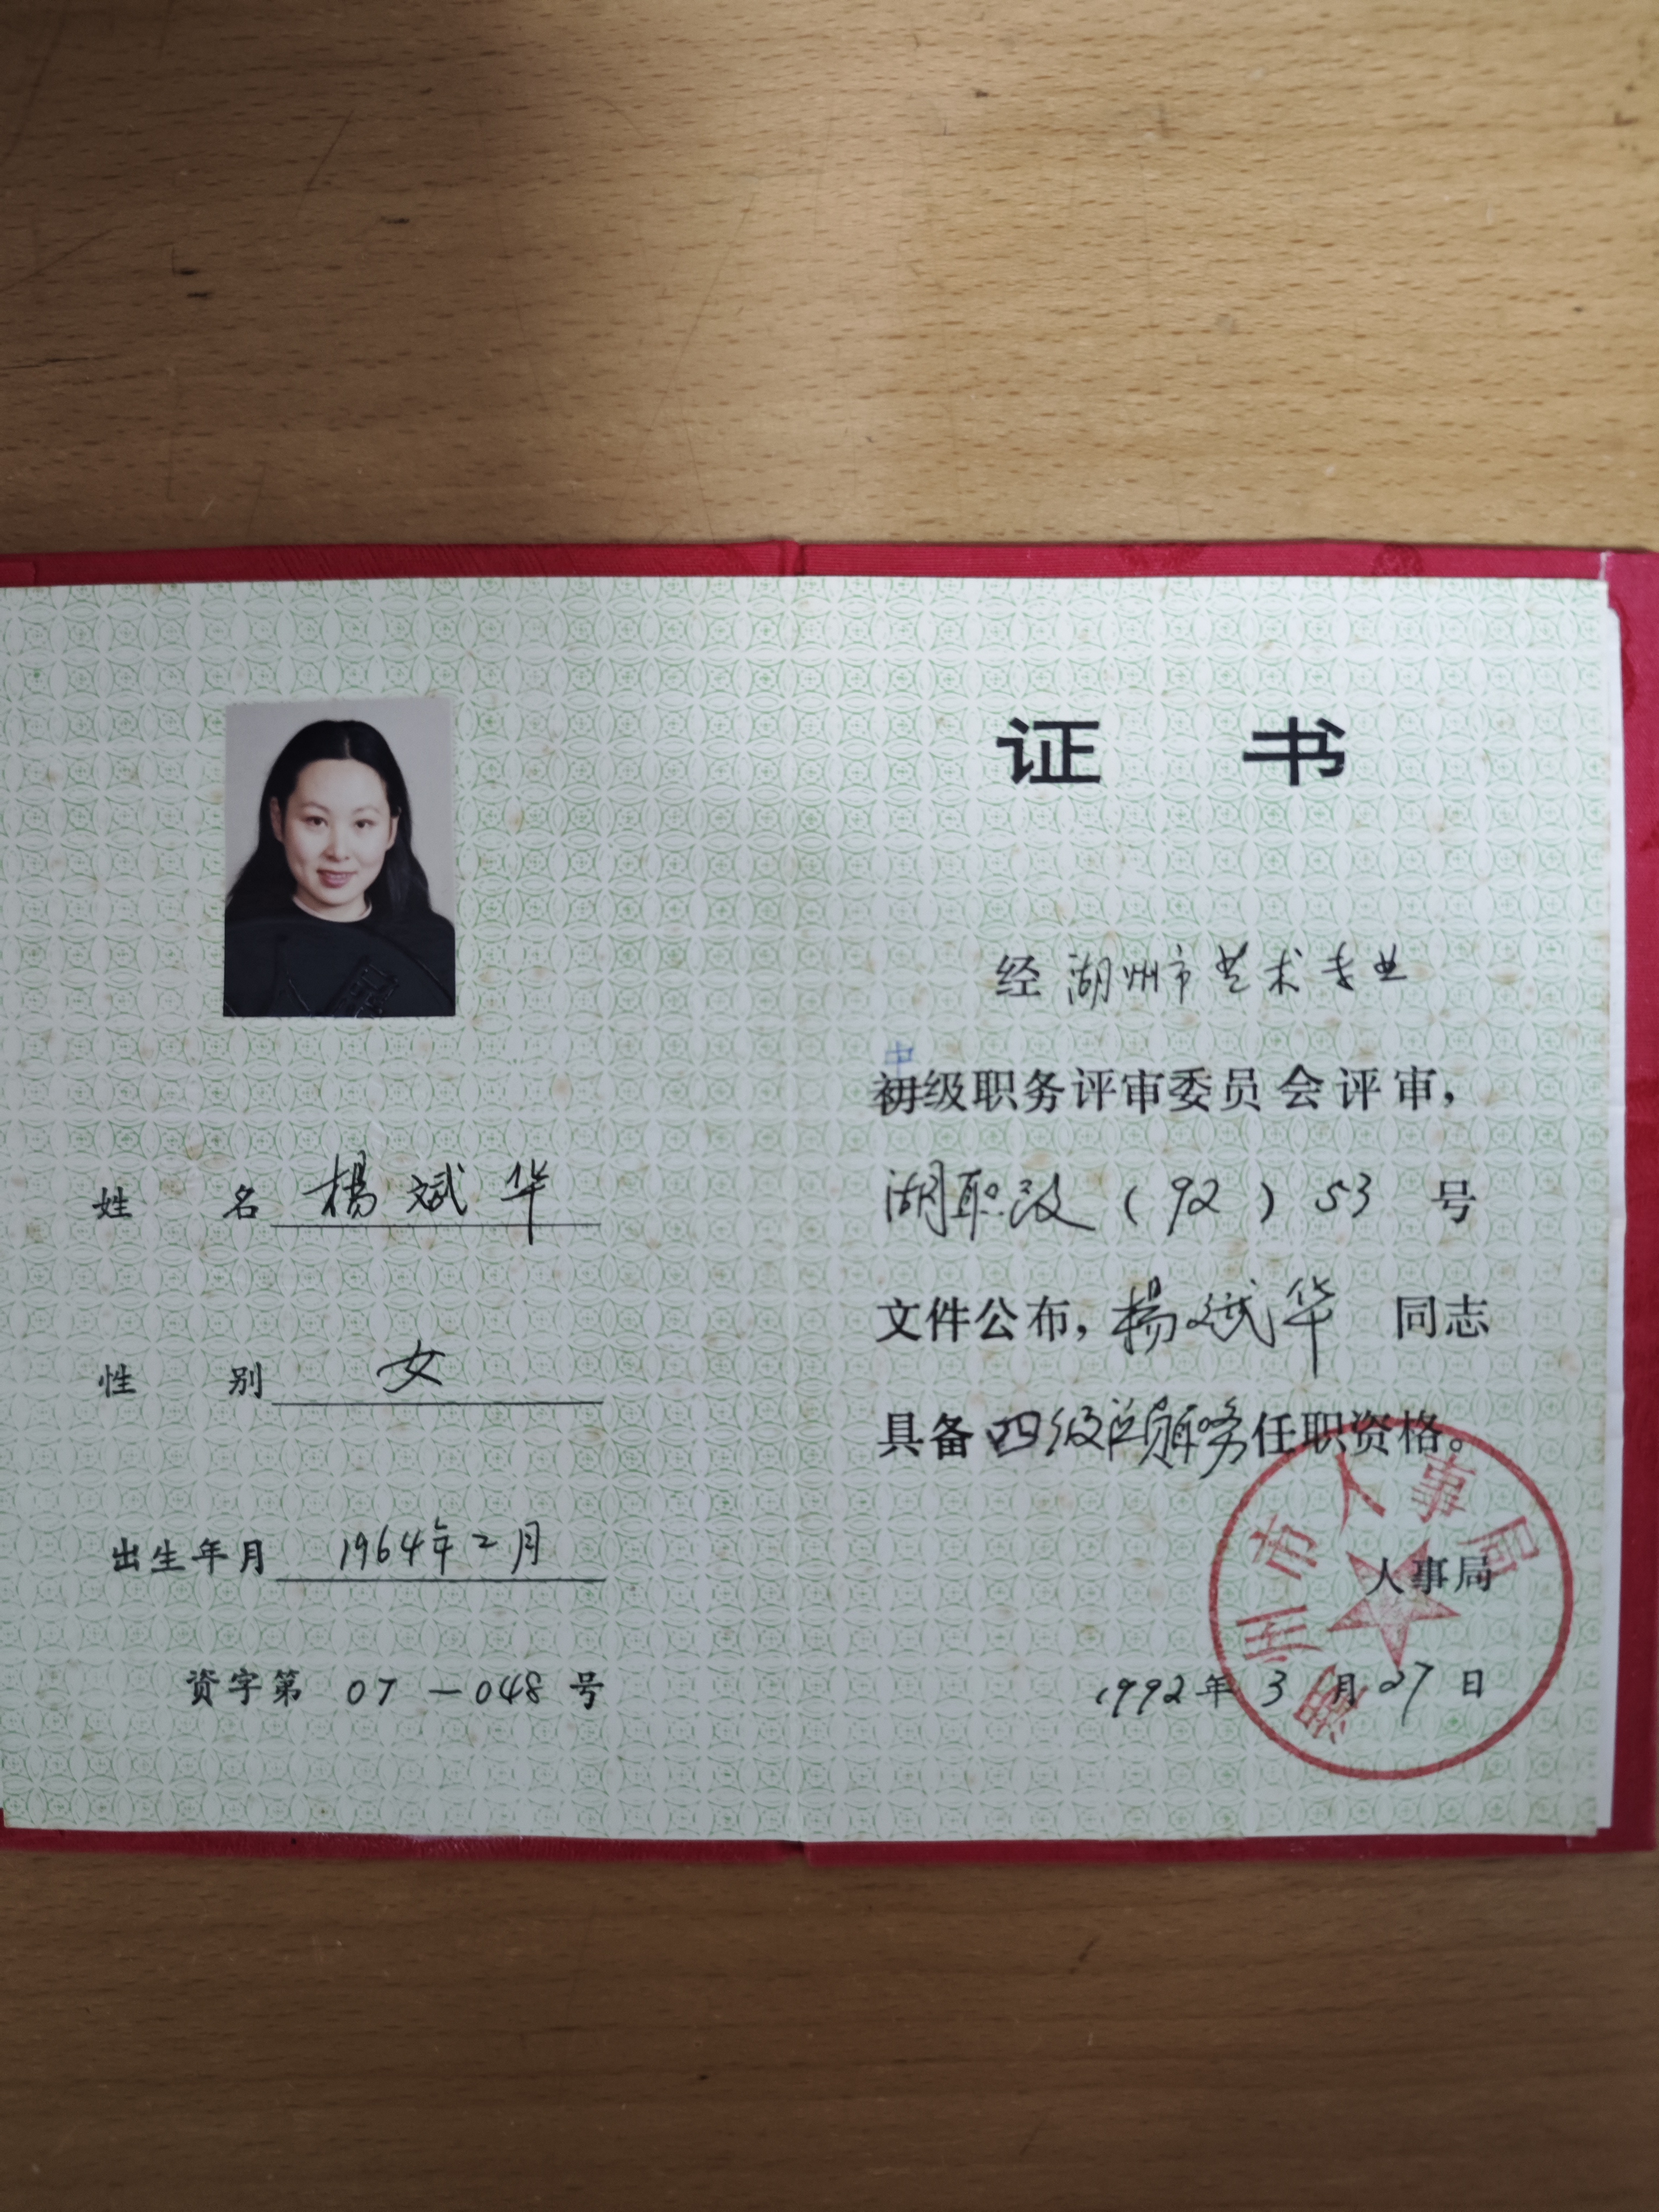 姓 名 楊斌华
性 别 女
出生年月 1964年二月
资字第 07-048 号
证 书
经湖州市艺术专业
中
初级职务评审委员会评审，
湖职改（92）53 号
文件公布，楊斌华 同志
具备四级任职资格。
人事局
1992年3月27日
湖州市人事局